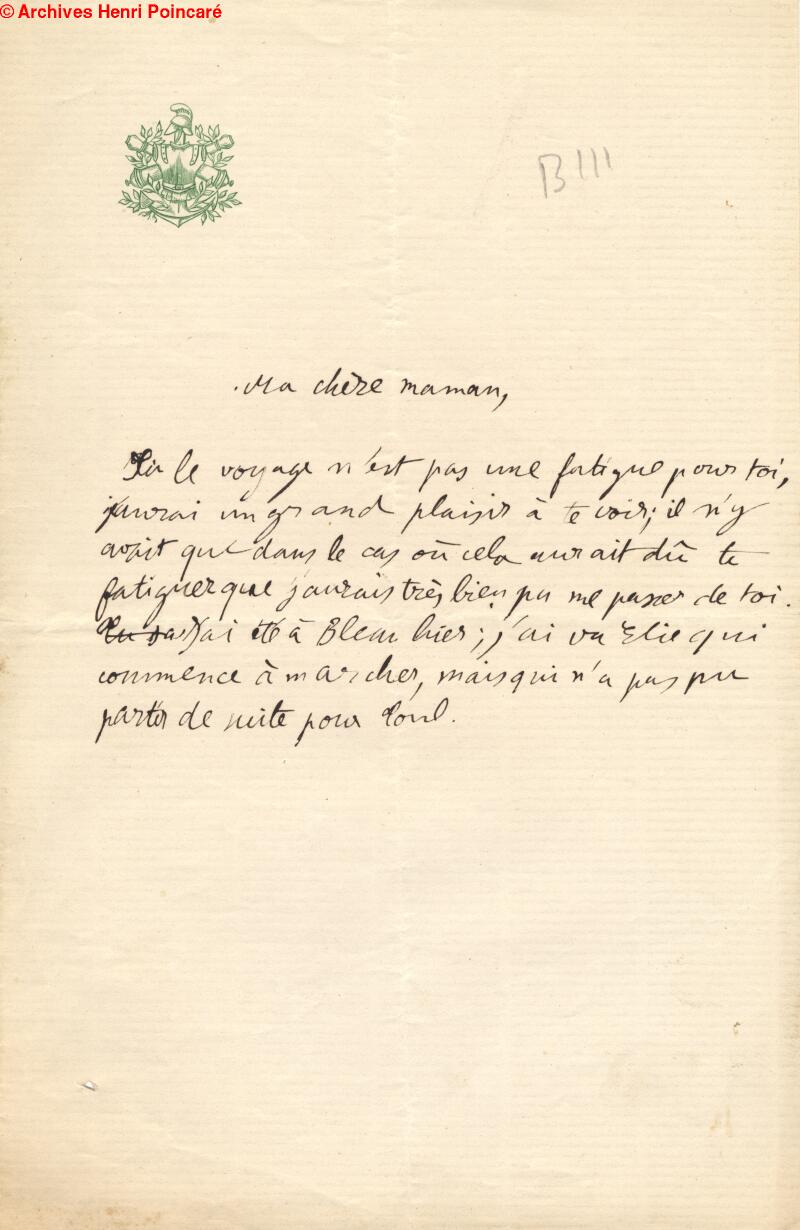 © Archives Henri Poincaré
B III
Ma chère maman,
Si le voyage n'est pas une fatigue pour toi,
j'aurai un grand plaisir à te voir; il n'y
avait que dans le cas où cela aurait dû te
fatiguer que j'aurais très bien pu me passer de toi.
J'ai été à Bleau hier; j'ai vu Elie qui
commence à marcher, mais qui n'a pas pu
partir de suite pour Toul.